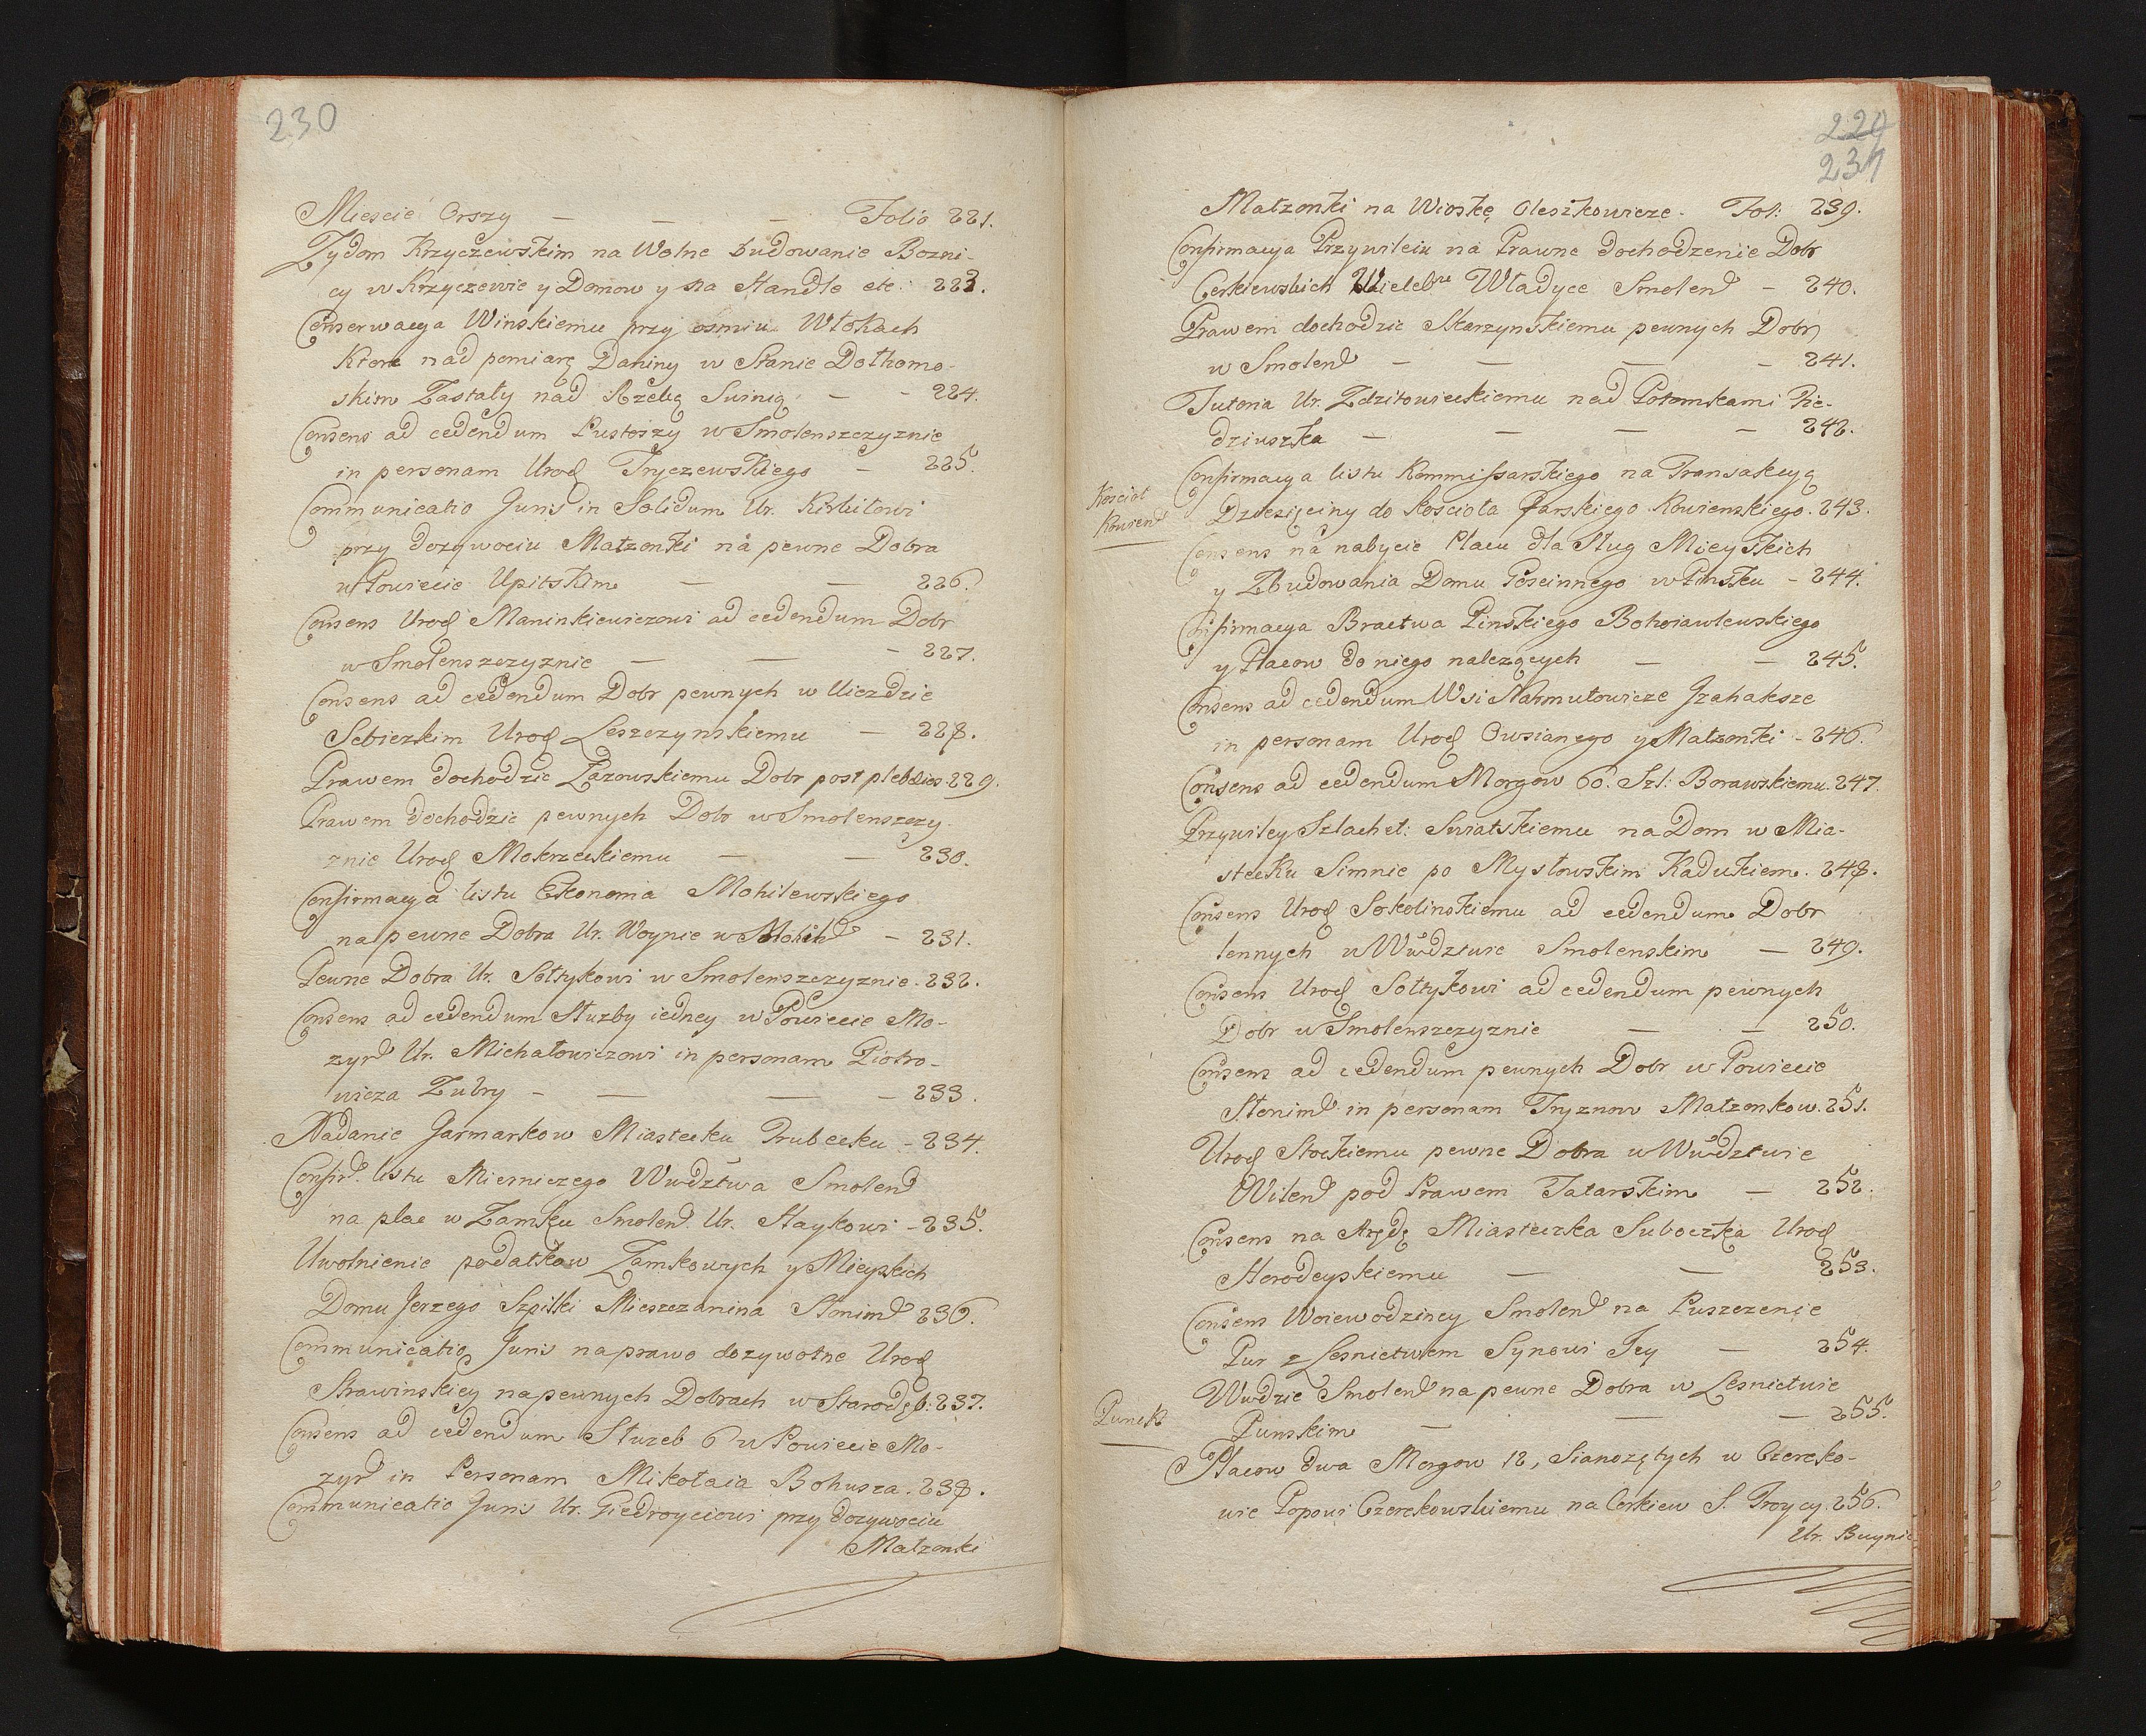 230
Miescie Orszy — — — Folio 221.
Zydom Krzyczewskim na Wolne budowanie Bozni-
cy w Krzyczewie y Domow y na Handle etc: 223.
Conserwacya Winskiemu przy osmiu Włokach
Ktore nad pomiarę Daniny w Stanie Dołhomo-
skim Zastały nad Rzeką Swinią — - 224.
Consens ad cedendum Pustoszy w Smolenszczyznie
in personam Urod Tryczewskiego — 225.
Communicatio Juris in Solidum Ur. Kirkiłowi
przy dozywociu Małzonki na pewne Dobra
w Powiecie Upitskim — — 226.
Consens Urod Maninkiewiczowi ad cedendum Dobr
w Smolenszczyznie — — - 227.
Consens ad cedendum Dobr pewnych w Uiezdzie
Sebiezkim Urod Leszczynskiemu — 228.
Prawem dochodzic Łazowskiemu Dobr post plebeios. 229.
Prawem dochodzic pewnych Dobr w Smolenszczy-
znie Urod Mokrzeckiemu — — 230.
Confirmacya listu Ekonoma Mohilewskiego
na pewne Dobra Ur. Woynie w Mohil - 231.
Pewne Dobra Ur. Sołtykowi w Smolenszczyznie. 232.
Consens ad cedendum Słuzby iedney w Powiecie Mo-
zyr Ur. Michałowiczowi in personam Piotro-
wicza Zubry - — — - 233.
Nadanie Jarmarkow Miasteczku Trubecku - 234.
Confir. listu Mierniczego Wwdztwa Smolen
na plac w Zamku Smolen. Ur. Staykowi - 235.
Uwolnienie podatkow Zamkowych y Mieyskich
Domu Jerzego Szpilki Mieszczanina Słonim 236.
Communicatio Juris na prawo dozywotne Urod
Strawinskiey na pewnych Dobrach w Starodęb: 237.
Consens ad cedendum Słuzeb 6 w Powiecie Mo-
zyr in Personam Mikołaia Bohusza. 238.
Communicatio Juris Ur. Giedroyciowi przy dozywociu
Małzonki
229
231
Małzonki na Wioskę Oleszkowicze. Fol: 239.
Confirmacya Przywileiu na Prawne dochodzenie Dobr
Cerkiewskich Wieleb Władyce Smolen - 240.
Prawem dochodzic Skarzynskiemu pewnych Dobr
w Smolen — — — - 241.
Tutoria Ur. Zdzitowieckiemu nad Potomkami Pie-
dziuszka — — — - 242.
Confirmacya listu Kommissarskiego na Transakcyą
Kosciol
Kowien
Dziesięciny do Koscioła Farskiego Kowienskiego. 243.
Consens na nabycie Placu dla Sług Mieyskich
y Zbudowania Domu Goscinnego w Pinsku - 244.
Confirmacya Bractwa Pinskiego Bohoiawlenskiego
y Placow do niego nalezących — — 245.
Consens ad cedendum Wsi Narmutowicze Jzahaksze
in personam Urod Owsianego y Małzonki - 246.
Consens ad cedendum Morgow 60. Szl: Borawskiemu. 247.
Przywiley Szlachet: Swiatskiemu na Dom w Mia-
steczku Simnie po Mysłowskim Kadukiem. 248.
Consens Urod Sokolinskiemu ad cedendum Dobr
lennych w Wwdztwie Smolenskim — 249.
Consens Urod Sołtykowi ad cedendum pewnych
Dobr w Smolenszczyznie — — 250.
Consens ad cedendum pewnych Dobr w Powiecie
Słonim in personam Tryznow Małzonkow. 251.
Urod Stockiemu pewne Dobra w Wwdztwie
Wilen pod Prawem Tatarskim — 252.
Consens na Arędę Miasteczka Suboczka Urod
Horodeyskiemu — — 253.
Consens Woiewodziney Smolen na Puszczenie
Pur z Lesnictwem Synowi Jey — 254.
Wwdzie Smolen na pewne Dobra w Lesnictwie
Punsk
Punskim — — — 255.
Placow dwa Morgow 12, Sianozętych w Czereko-
wie Popowi Czerekowskiemu na Cerkiew S. Troycy. 256.
Ur. Buynic